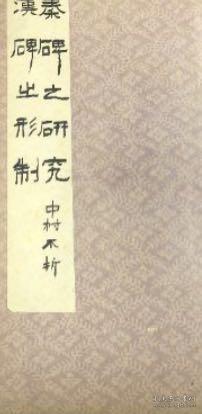 秦碑之研究
漢碑之形制
中村不折